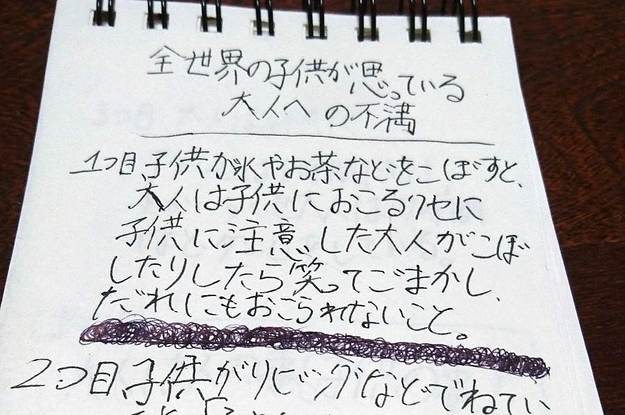 全世界の子供が思っている
大人への不満
1つ目子供が水やお茶などをこぼすと、
大人は子供におこるクセに
子供に注意した大人がこぼ
したりしたら笑ってごまかし、
だれにもおこられないこと。
2つ目子供がリビングなどでねてい